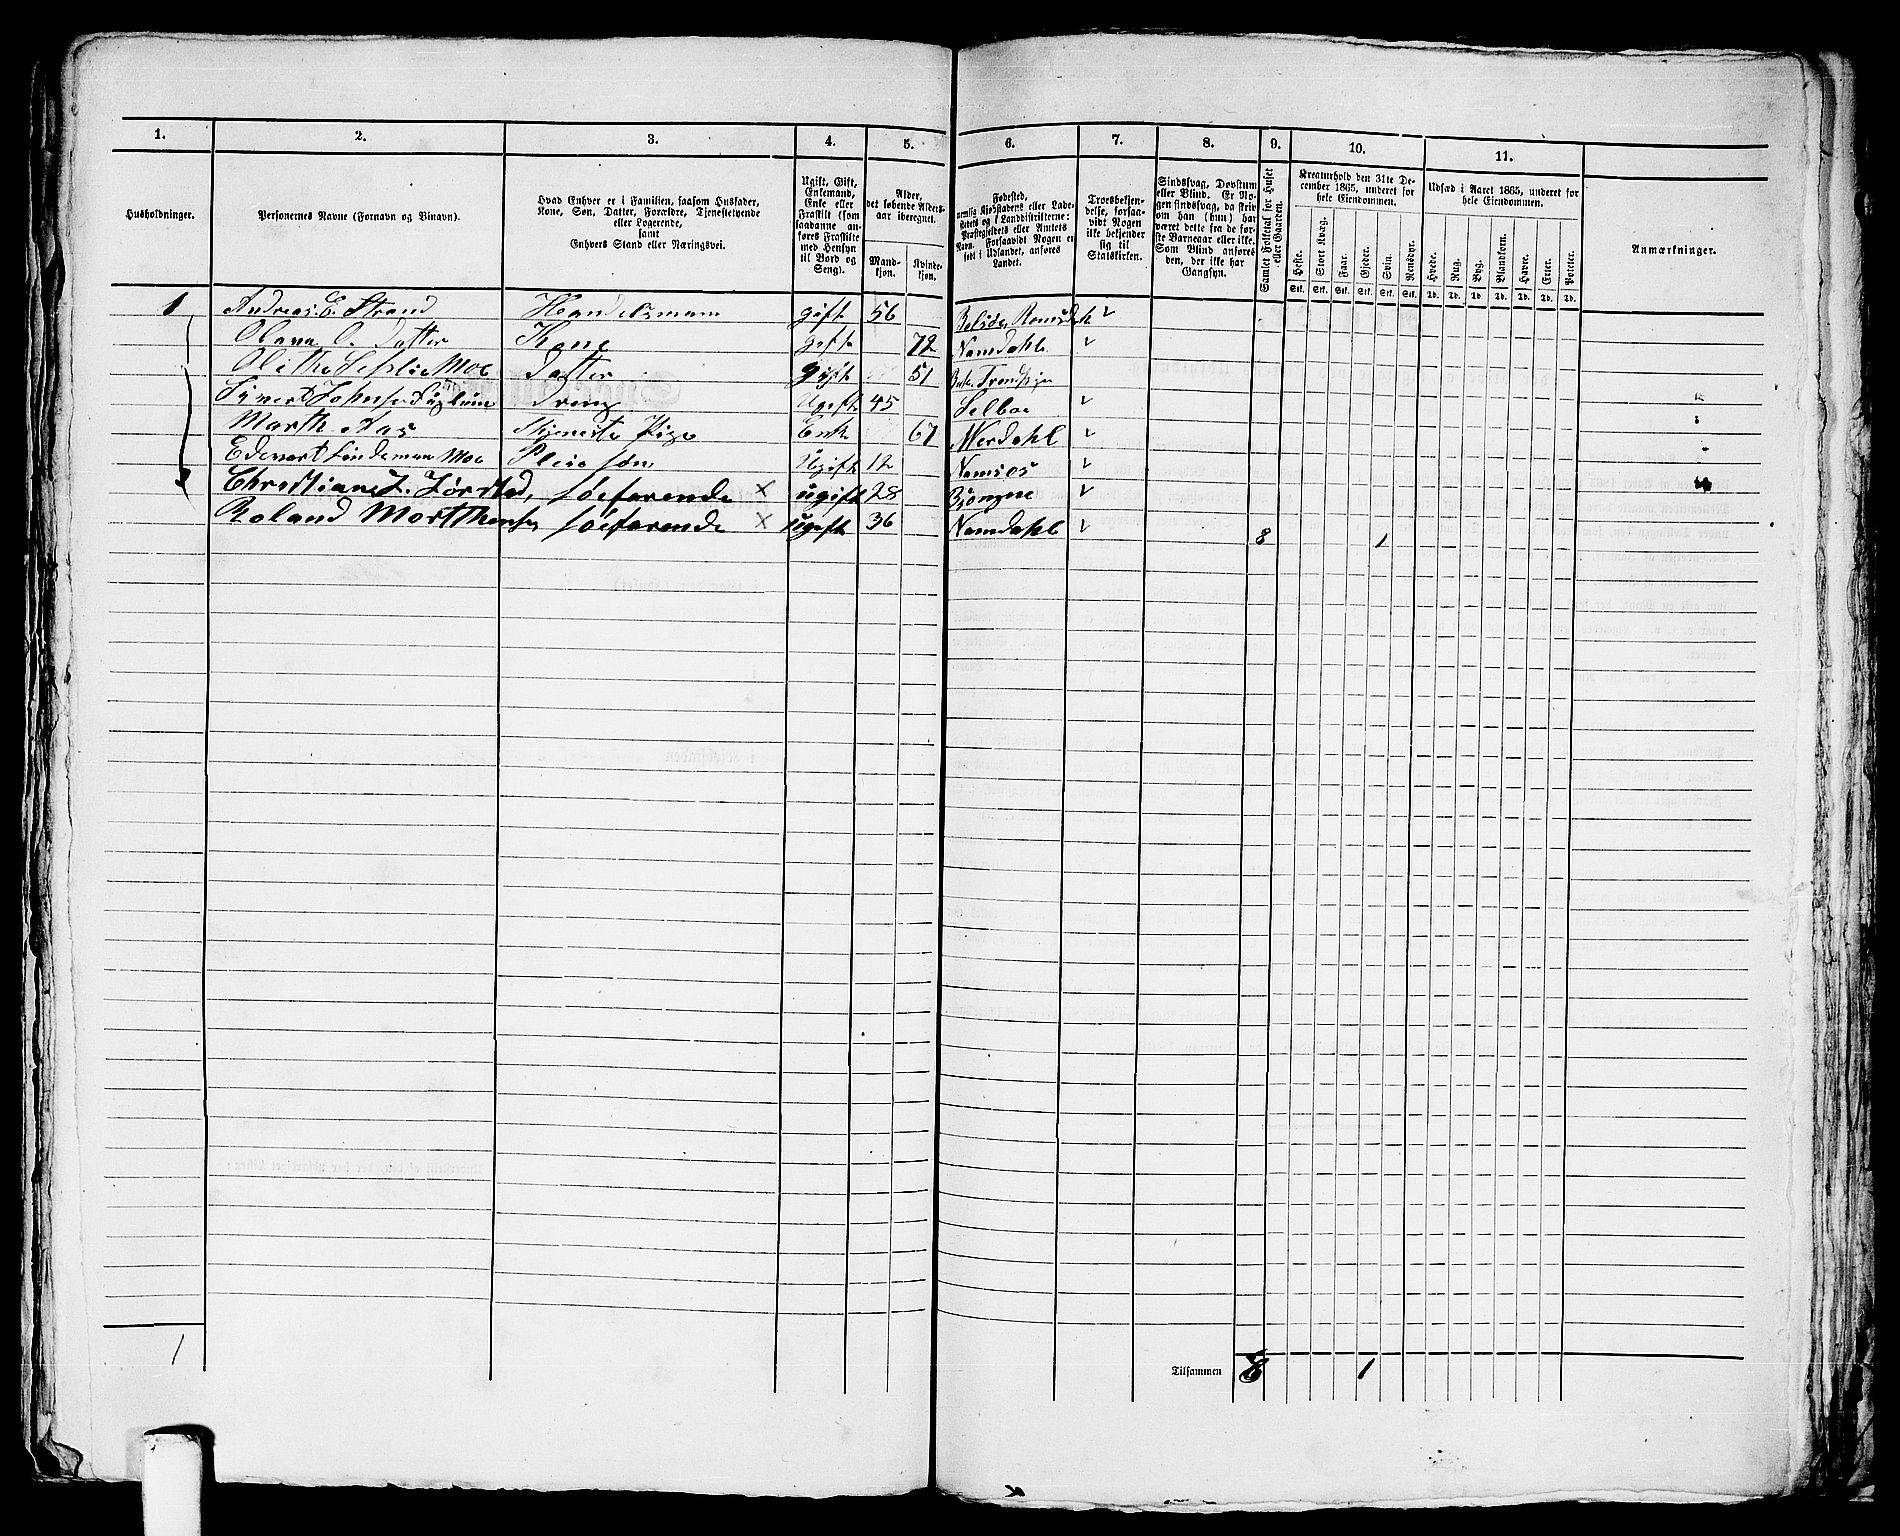 1. 2. 3. 4. 5. 6. 7. 8. 9. 10. 11.
Husholdninger.
Personernes Navne (Fornavn og Binavn).
Hvad Enhver er i Familien, saasom Husfader,
Kone, Søn, Datter, Forældre, Tjenestetyende
eller Logerende,
samt
Enhvers Stand eller Næringsvei.
Ugift, Gift,
Enkemand,
Enke eller
Fraskilt (som
saadanne an-
føres Fraskilte
med Hensyn
til Bord og
Seng).
Alder,
det løbende Alders-
aar iberegnet.
Mand-
kjøn.
Kvinde-
kjøn.
Fødested,
nemlig Kjøbstadens eller Lade-
stedets og i Landdistrikterne:
Præstegjeldets eller Amtets
Navn. Forsaavidt Nogen er
født i Udlandet, anføres
Landet.
Troesbekjen-
delse, forsaa-
vidt Nogen
ikke bekjender
sig til
Statskirken.
Sindssvag, Døvstum
eller Blind. Er No-
gen sindssvag, da skriv
om han (hun) har
været dette fra de før-
ste Barneaar eller ikke.
Som Blind anføres
den, der ikke har
Gangsyn.
Samlet Folketal for Huset
eller Gaarden.
Kreaturhold den 31te De-
cember 1865, underet for
hele Eiendommen.
Heste. Stort Kvæg. Faar. Gjeder. Svin. Rensdyr.
Stk. Stk. Stk. Stk. Stk. Stk.
Udsæd i Aaret 1865, underet for
hele Eiendommen.
Hvede. Rug. Byg. Blandkorn. Havre. Erter. Poteter.
Td. Td. Td. Td. Td. Td. Td.
Anmærkninger.
1 Andreas E. Strand Handelsmann gift 56 Romsdahl
Olava O. Datter Kone gift 72 Namdahl
Olithe Leslie Moe Datter gift 51
Johnsen Dreng Ugift 45 Selboe
Marth Aas Tjeneste Pige Enk 67 Werdahl
Edevart Lindeman Moe Pleie søn Ugift 12 Namsos
Christian Zørstad, søefarende × ugift 28
Roland Morthensen søefarende × ugift 36 Namdahl
8 1
1 Tilsammen 8 1